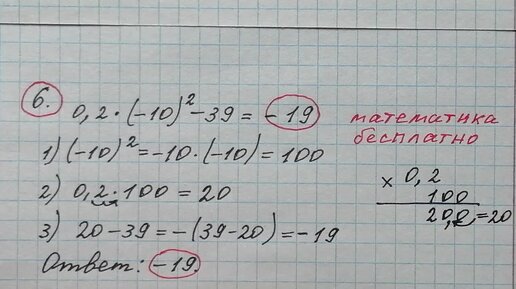 6.
0,2·(-10)²-39 = -19
1) (-10)² = -10·(-10) = 100
2) 0,2·100 = 20
3) 20-39 = -(39-20) = -19
Ответ: -19.
математика
бесплатно
× 0,2
100
20,0 = 20